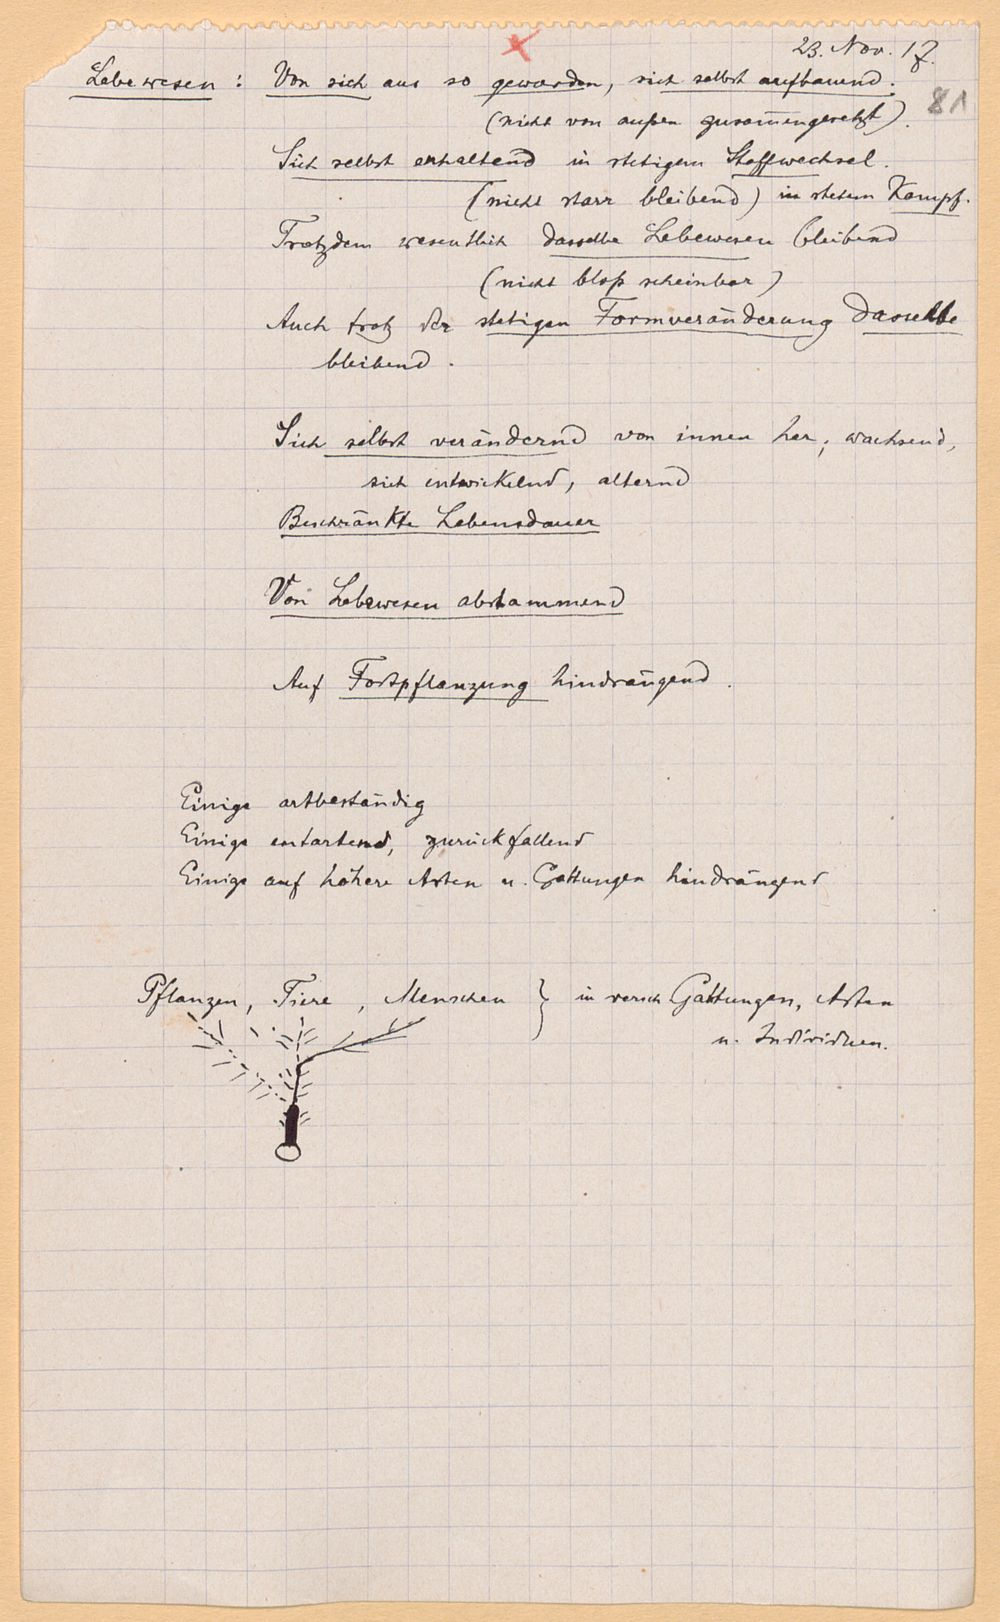 23. Nov. 17.
81
Lebewesen : Von sich aus so geworden, sich selbst aufbauend.
(nicht von außen zusam̅engesetzt).
Sich selbst erhaltend in stetigem Stoffwechsel.
(nicht starr bleibend) in stetem Kampf.
Trotzdem wesentlich dasselbe Lebewesen bleibend
(nicht bloß scheinbar)
Auch trotz der stetigen Formveränderung dasselbe
bleibend.
Sich selbst verändernd von innen her, wachsend,
sich entwickelnd, alternd
Beschränkte Lebensdauer
Von Lebewesen abstammend
Auf Fortpflanzung hindrängend.
Einige artbeständig
Einige entartend, zurückfallend
Einige auf höhere Arten u. Gattungen hindrängend
Pflanzen, Tiere, Menschen } in versch Gattungen, Arten
u. Individuen.